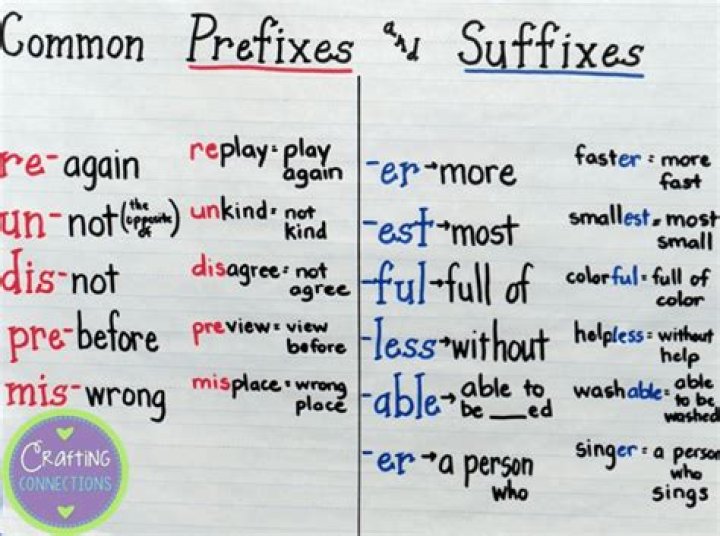 Common Prefixes and Suffixes
re- again
replay = play
again
un- not (the
opposite
of)
unkind = not
kind
dis- not
disagree = not
agree
pre- before
preview = view
before
mis- wrong
misplace = wrong
place
-er → more
faster = more
fast
-est → most
smallest = most
small
-ful → full of
colorful = full of
color
-less → without
helpless = without
help
-able → able to
be ___ed
washable = able
to be
washed
-er → a person
who
singer = a person
who
sings
CRAFTING
CONNECTIONS